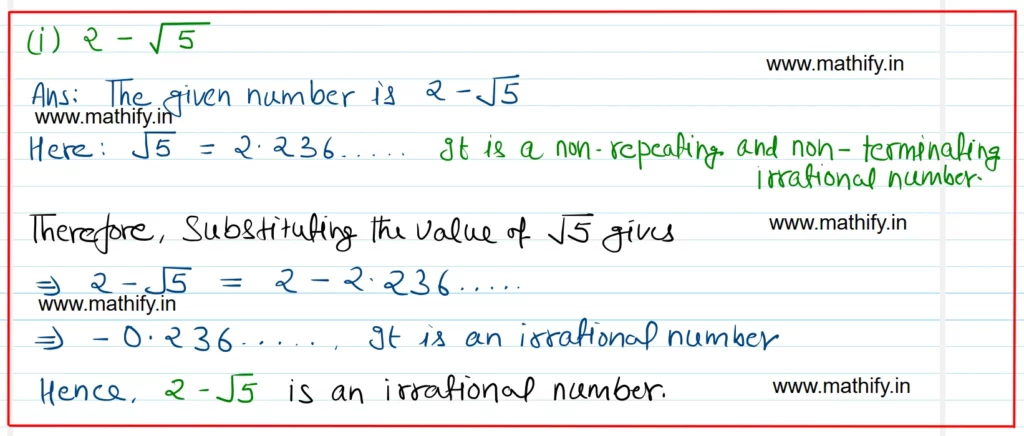 (i) 2 - √5
www.mathify.in
Ans: The given number is 2 - √5
www.mathify.in
Here: √5 = 2.236..... It is a non-repeating and non-terminating
irrational number.
Therefore, Substituting the value of √5 gives
www.mathify.in
⇒ 2 - √5 = 2 - 2.236.....
www.mathify.in
⇒ - 0.236...... It is an irrational number
Hence, 2 - √5 is an irrational number.
www.mathify.in